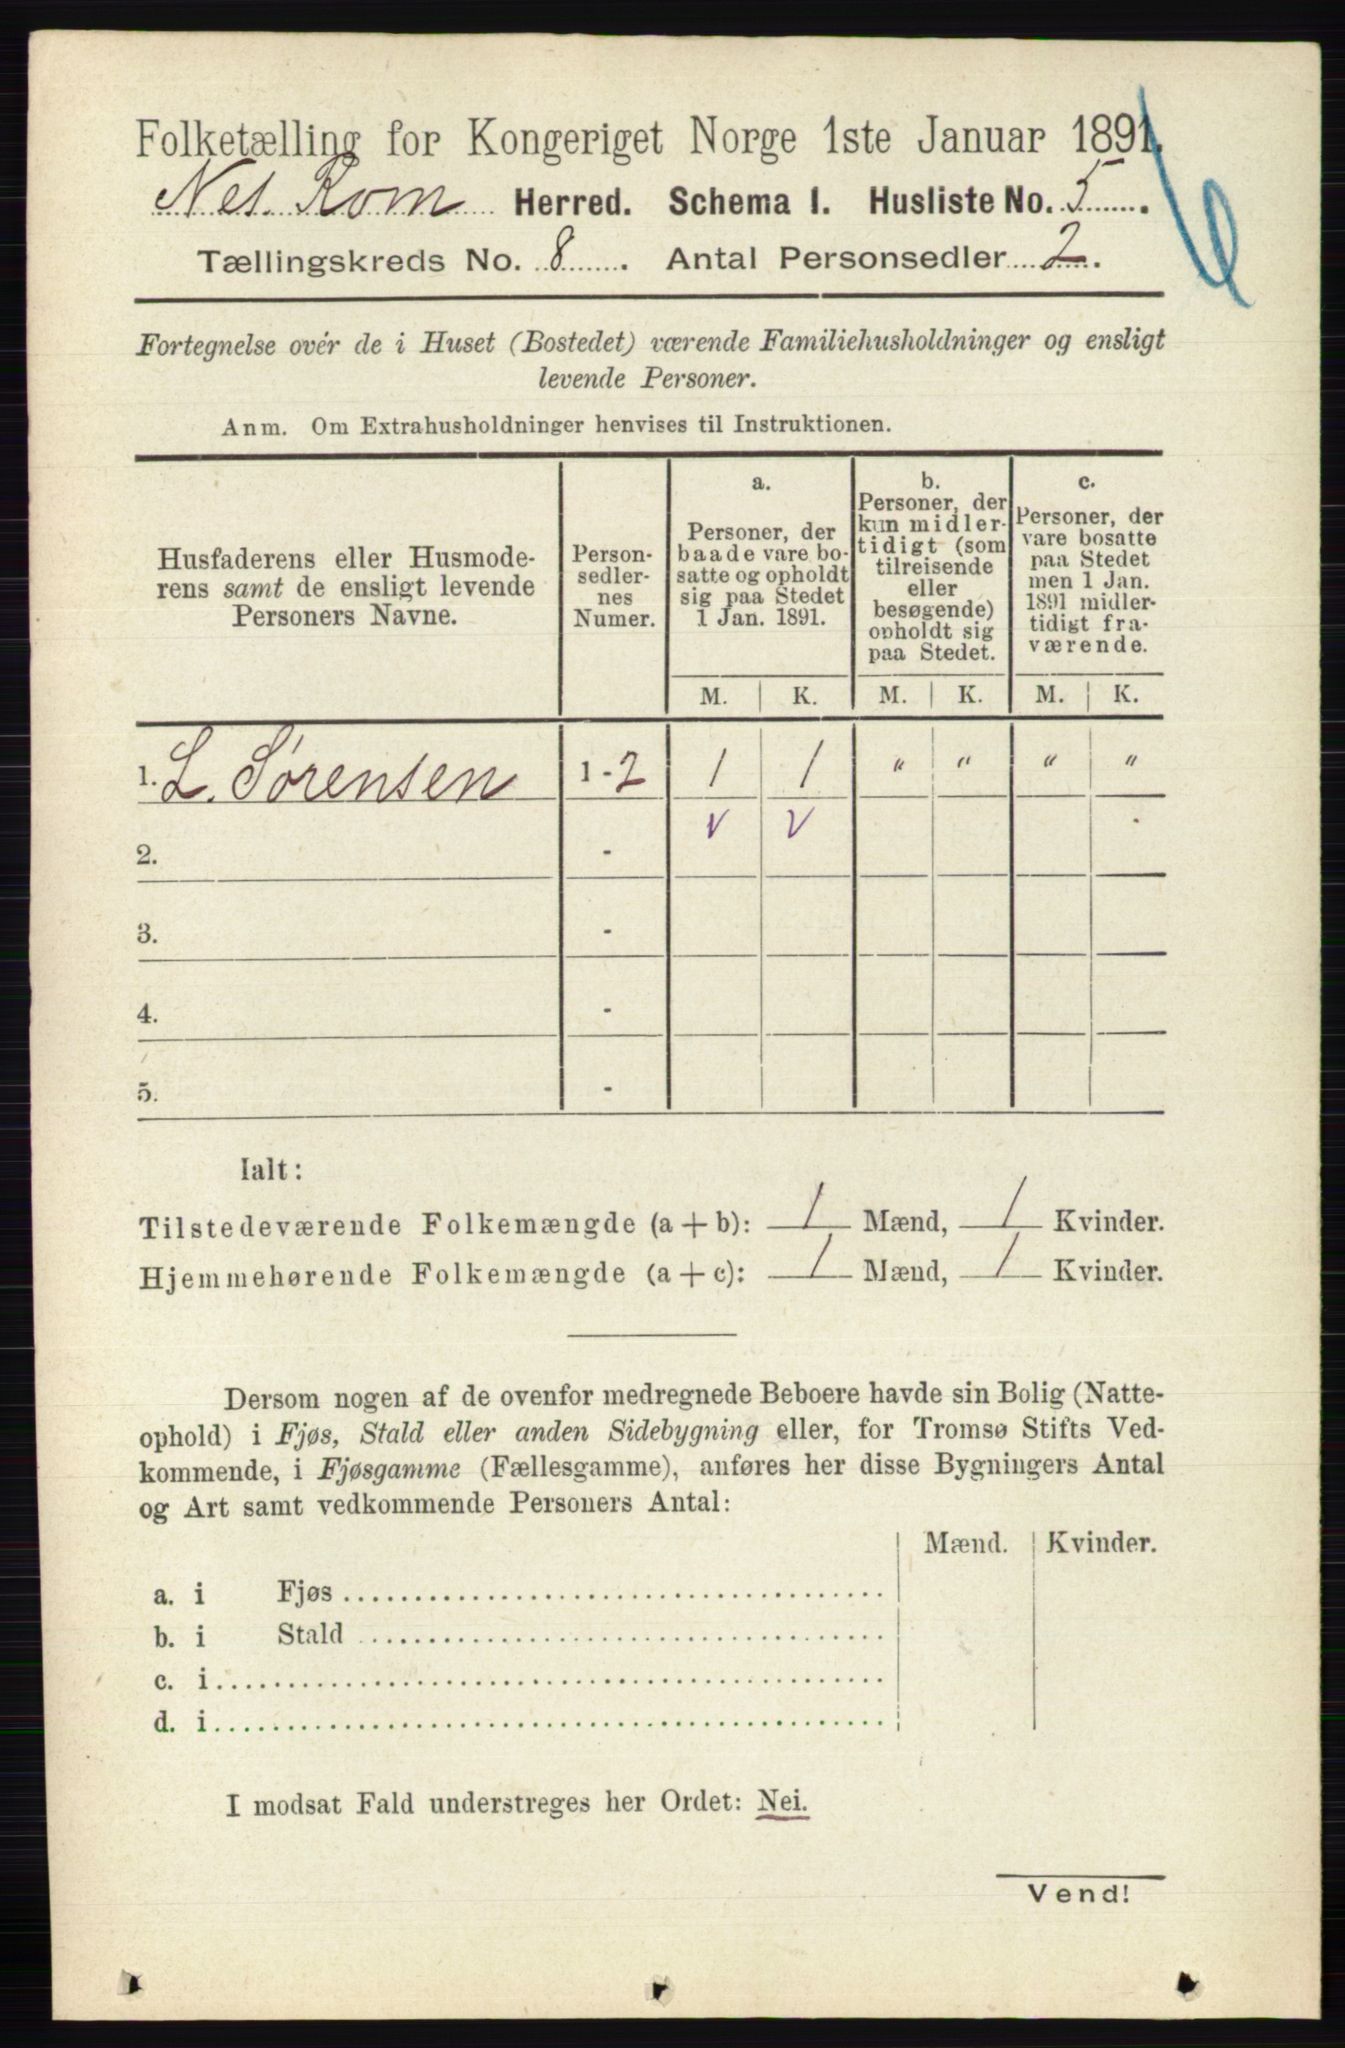 Folketælling for Kongeriget Norge 1ste Januar 1891.
Nes. Rom Herred. Schema I. Husliste No. 5.
Tællingskreds No. 8. Antal Personsedler 2.
Fortegnelse over de i Huset (Bostedet) værende Familiehusholdninger og ensligt
levende Personer.
Anm. Om Extrahusholdninger henvises til Instruktionen.
Husfaderens eller Husmode-
rens samt de ensligt levende
Personers Navne.
Person-
sedler-
nes
Numer.
a.
Personer, der
baade vare bo-
satte og opholdt
sig paa Stedet
1 Jan. 1891.
b.
Personer, der
kun midler-
tidigt (som
tilreisende
eller
besøgende)
opholdt sig
paa Stedet.
c.
Personer, der
vare bosatte
paa Stedet
men 1 Jan.
1891 midler-
tidigt fra-
værende.
M. K. M. K. M. K.
1. L. Sørensen 1 - 2 1 1 " " " "
v v
2. -
3. -
4. -
5. -
Ialt:
Tilstedeværende Folkemængde (a + b): 1 Mænd, 1 Kvinder.
Hjemmehørende Folkemængde (a + c): 1 Mænd, 1 Kvinder.
Dersom nogen af de ovenfor medregnede Beboere havde sin Bolig (Natte-
ophold) i Fjøs, Stald eller anden Sidebygning eller, for Tromsø Stifts Ved-
kommende, i Fjøsgamme (Fællesgamme), anføres her disse Bygningers Antal
og Art samt vedkommende Personers Antal:
Mænd. Kvinder.
a. i Fjøs
b. i Stald
c. i
d. i
I modsat Fald understreges her Ordet: Nei.
Vend!